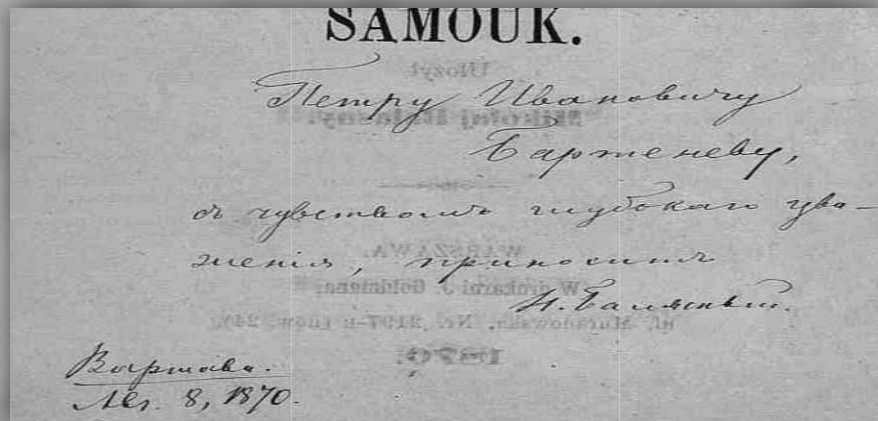 SAMOUK.
Петру Ивановичу
Бартеневу,
съ чувствомъ глубокаго ува-
женія, приноситъ
Н. Балясный.
Варшава.
Авг. 8, 1870.